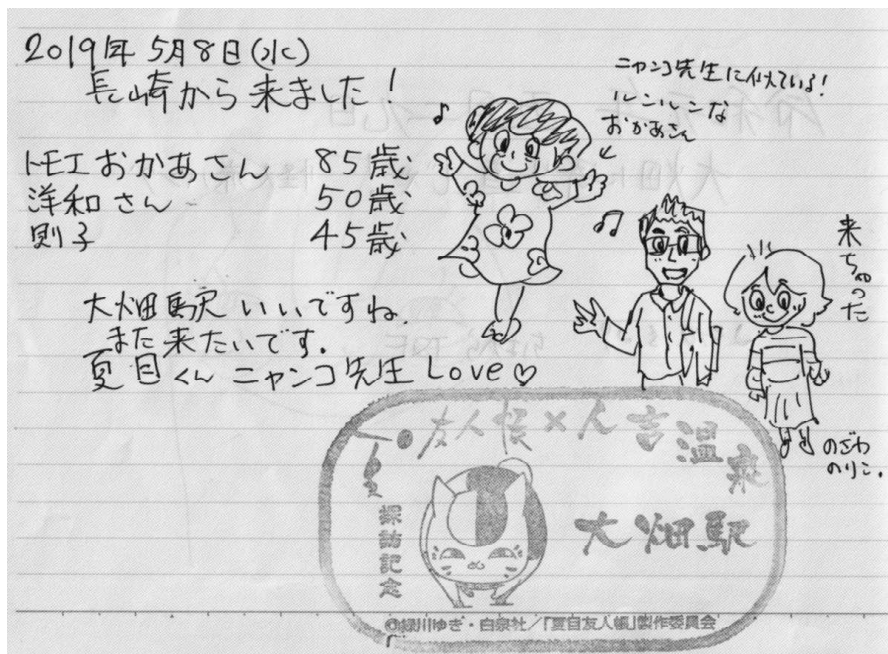 2019年 5月8日(水)
長崎から来ました!
トモエおかあさん 85歳
洋和さん 50歳
則子 45歳
大畑駅いいですね.
また来たいです.
夏目くん ニャンコ先生 Love♡
ニャンコ先生に似ている!
ルンルンな
おかあさん
来ちゃった
のざわ
のりこ.
夏目友人帳×人吉温泉
大畑駅
探訪記念
©緑川ゆき・白泉社/「夏目友人帳」製作委員会